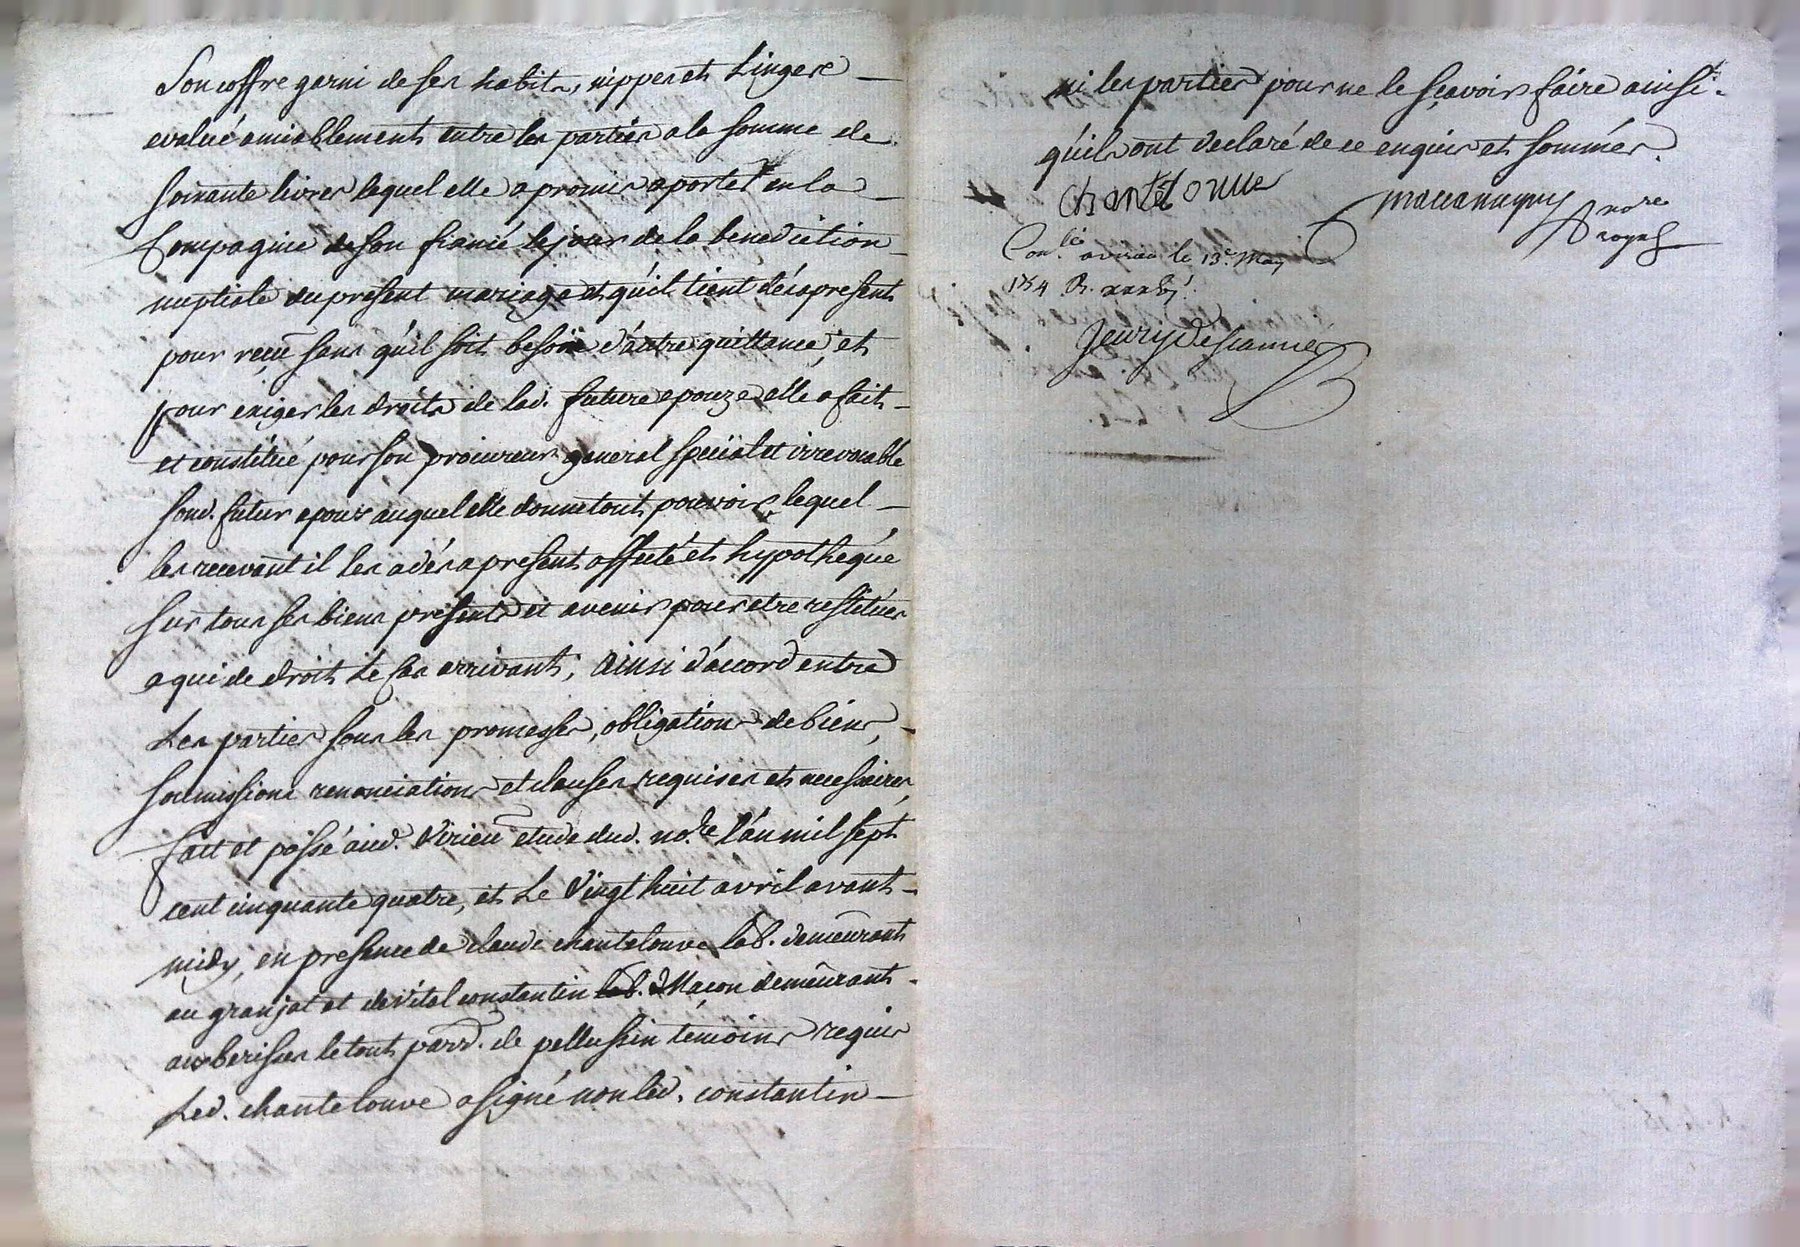 Son coffre garni de ses habits, nippes et Lingere
evalué amiablement entre les parties a la somme de
soixante livres lequel elle a promis aporter en la
Compagnie de son fiancé le jour de la benediction
nuptiale du present mariage et qu'il tient dés apresent
pour reçu sans qu'il soit besoin d'autre quittance, et
pour exiger les droits de lad. future epouze elle a fait
et constitué pour son procureur general special et irrevocable
sond. futur epoux auquel elle donne tout pouvoir, lequel
les recevant il les a dés apresent affecté et hypothequé
sur tous ses biens presents et avenir pour etre restitués
a qui de droit Le cas arrivant; ainsi d'accord entre
Les parties sous les promesses, obligations de biens,
soumissions renonciations et clauses requises et necessaires,
fait et passé aud. Virieu etude dud. no.re l'an mil sept
cent cinquante quatre, et Le Vingt huit avril avant
midy, en presence de claude chantelouve lab. demeurant
au granjat et de vital constantin lab. Macon demeurant
aux berisier le tout parr. de pellussin temoins requis
Led. chantelouve a signé non led. constantin
ni les parties pour ne le sçavoir faire ainsi
qu'ils ont declaré de ce enquis et sommés.
Chantelouve
nore
royal
Con.lé a virieu le 13e May
1754 R.